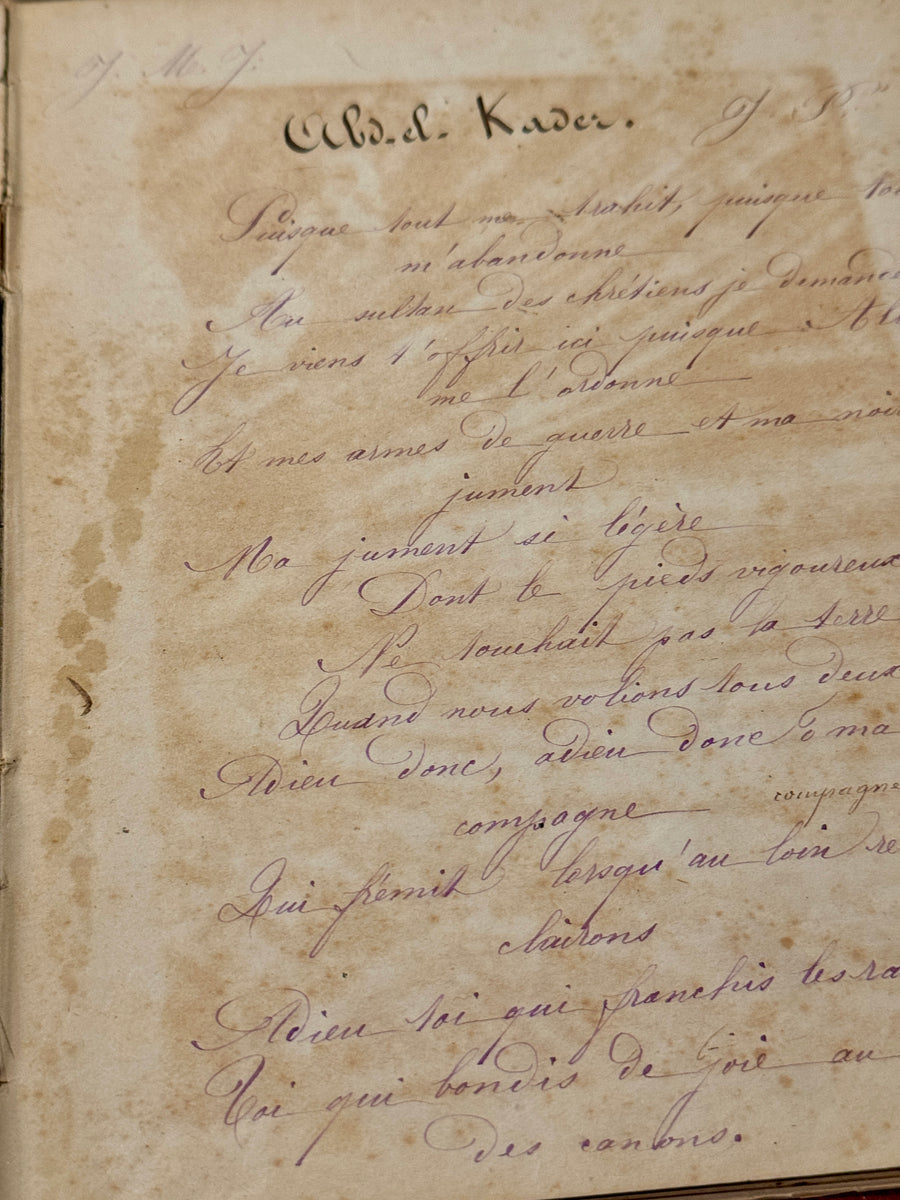 J. M. J.
Abd-el-Kader.
Puisque tout me trahit, puisque
m'abandonne
Au sultan des chrétiens je demande
Je viens t'offrir ici puisque
me l'ordonne
Et mes armes de guerre et ma
jument
Ma jument si légère
Dont le pieds vigoureux
Ne touchait pas la terre
Quand nous volions tous deux
Adieu donc, adieu donc ô ma
compagne compagne
Qui frémit lorsqu'au loin
clairons
Adieu toi qui franchis les
Toi qui bondis de joie au
des canons.